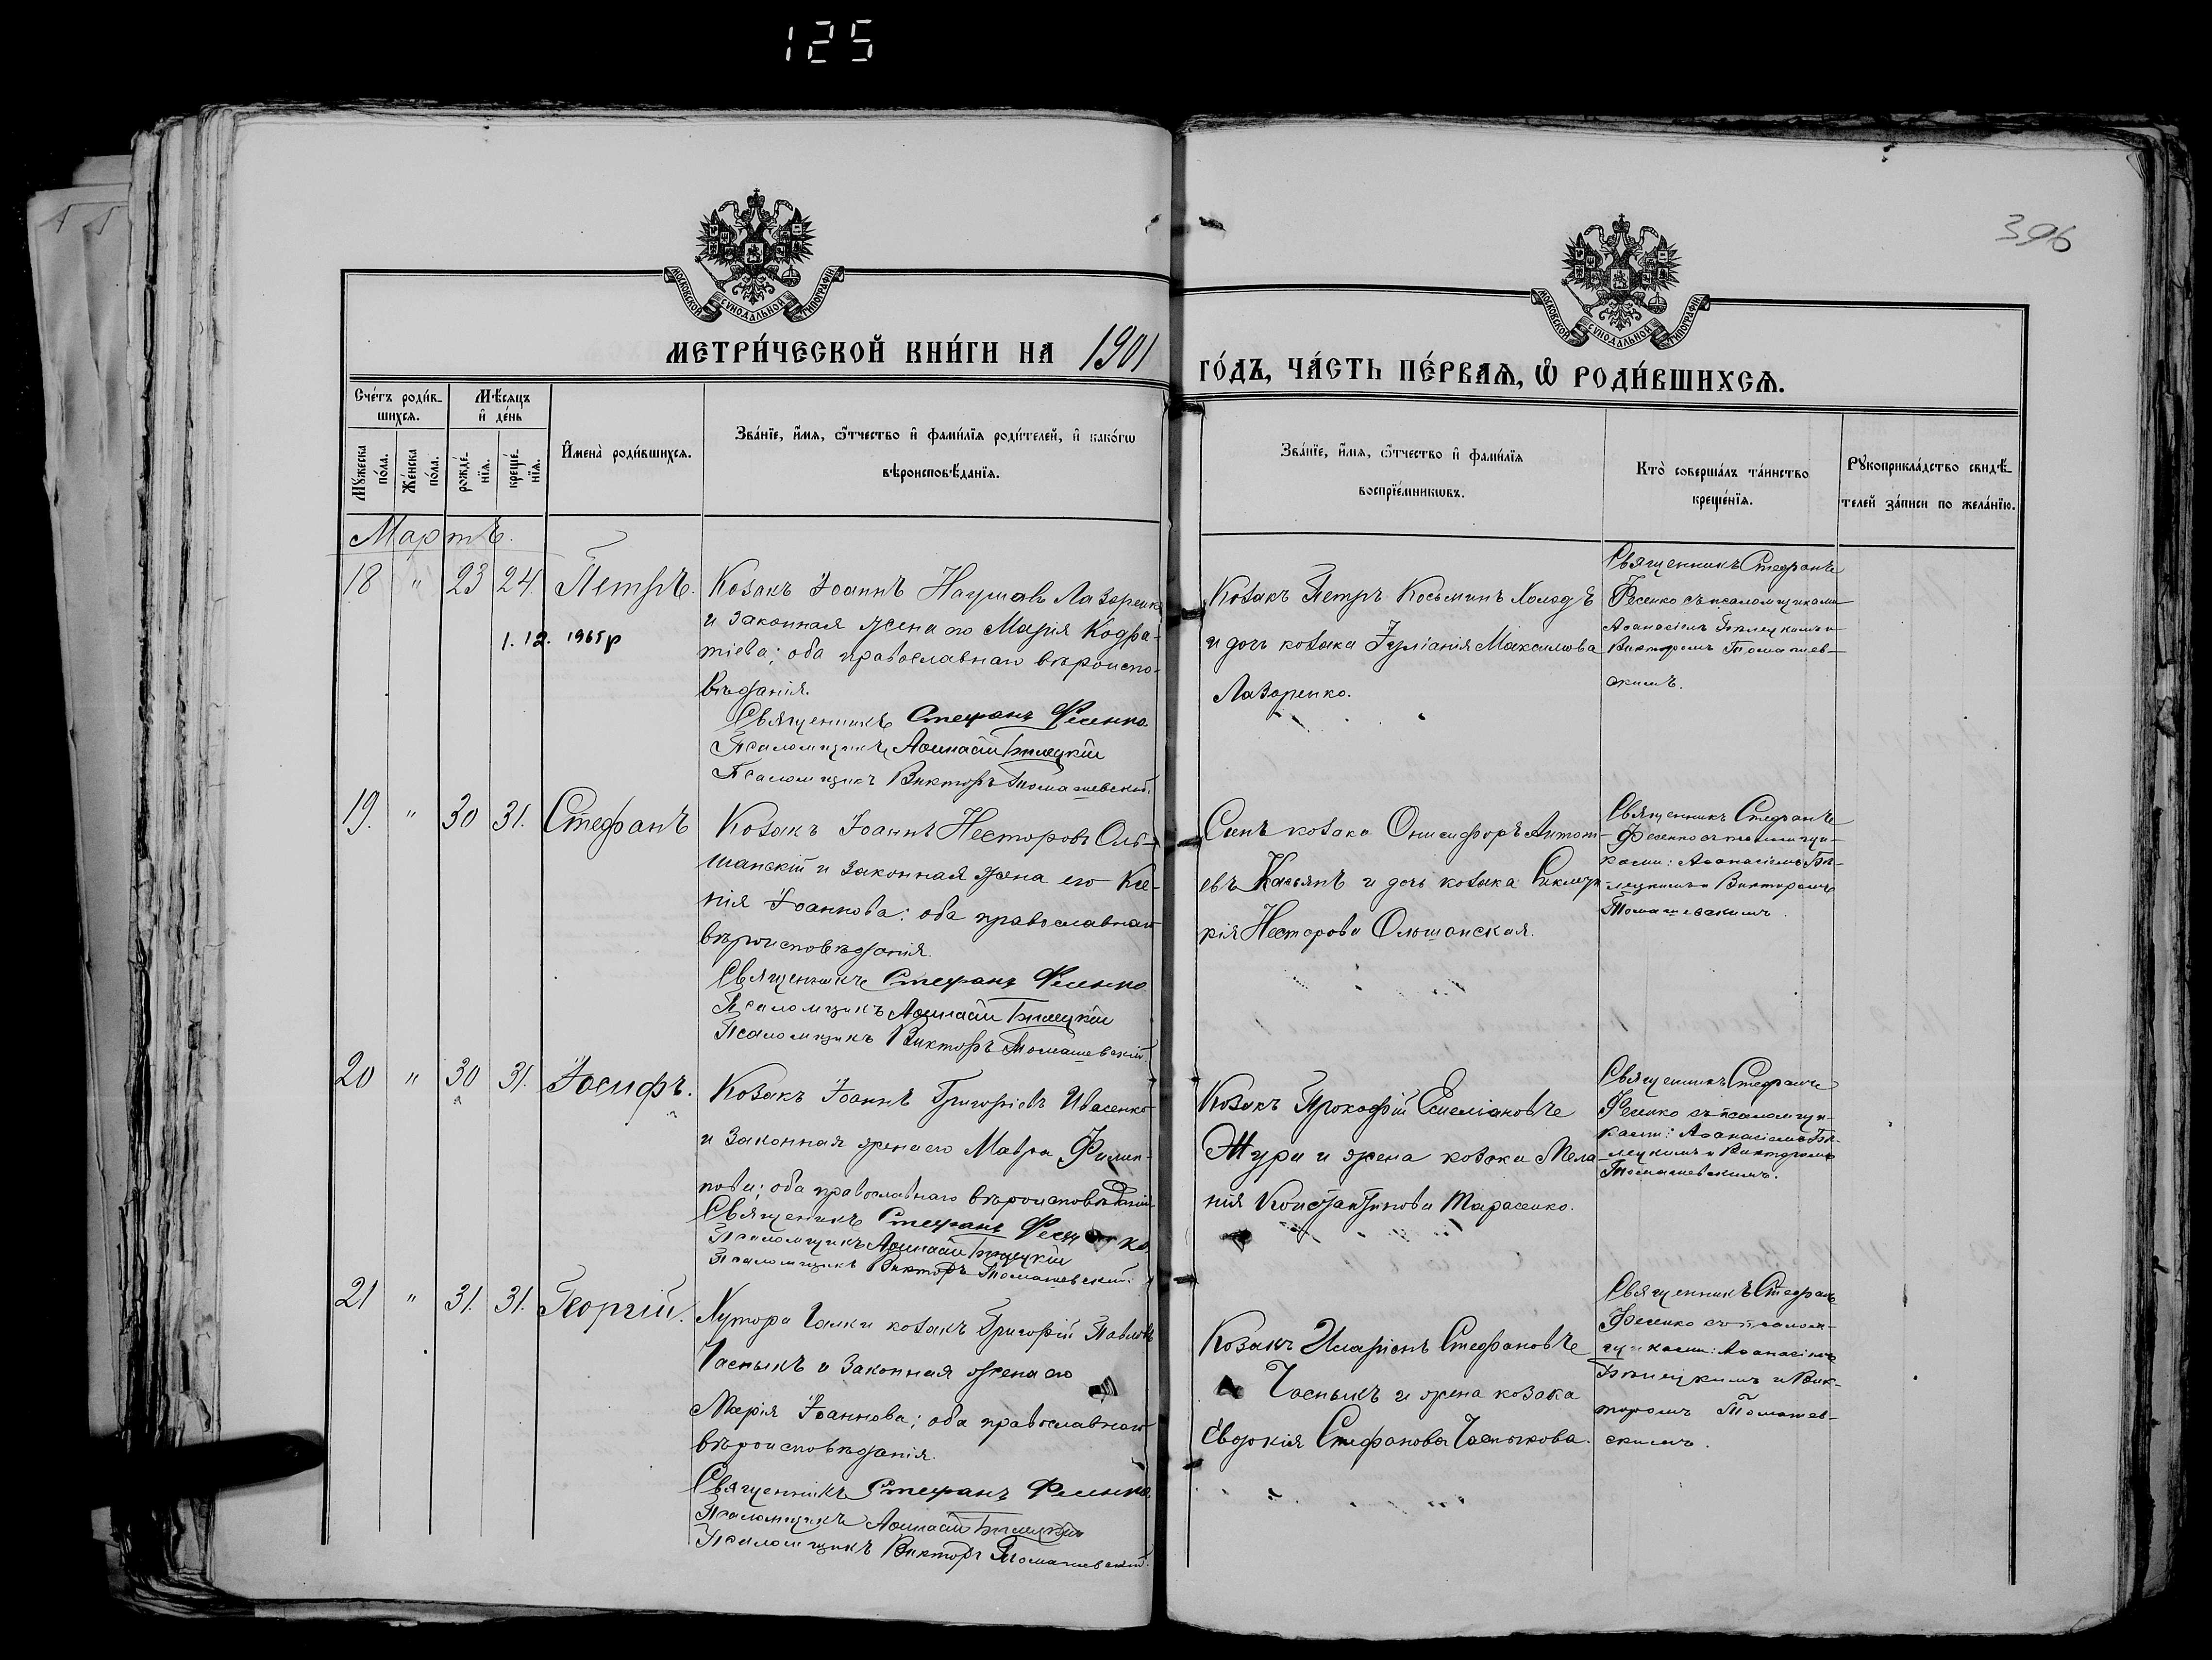 125
396
МОСКОВСКОЙ СУНОДАЛЬНОЙ ТИПОГРАФІИ
МОСКОВСКОЙ СУНОДАЛЬНОЙ ТИПОГРАФІИ
МЕТРИ́ЧЕСКОЙ КНИ́ГИ НА 1901
ГО́ДЪ, ЧА́СТЬ ПЕ́РВАѦ, Ѡ҆ РОДИ́ВШИХСѦ.
Сче́тъ роди́в-
шихсѧ.
Мѣ́сѧцъ
и҆ де́нь
Мꙋ́жеска
по́ла.
Же́нска
по́ла.
рожде́-
нїѧ.
креще́-
нїѧ.
И҆мена̀ роди́вшихсѧ.
Зва́нїе, и҆́мѧ, ѻ҆́тчество и҆ фами́лїѧ роди́телей, и҆ како́гѡ
вѣроисповѣ́данїѧ.
Зва́нїе, и҆́мѧ, ѻ҆́тчество и҆ фами́лїѧ
воспрїе́мникѡвъ.
Кто̀ соверша́лъ та́инство
креще́нїѧ.
Рꙋкоприкла́дство свидѣ́-
телей за́писи по жела́нїю.
Мартъ.
18 " 23 24. Петръ.
1.12. 1965р
Козакъ Іоаннъ Наумовъ Лазоренко
и законная жена его Марія Кодра-
тіева; оба православнаго вѣроиспо-
вѣданія.
Священникъ Стефанъ Фесенко
Псаломщикъ Аѳанасій Бѣлецкій
Псаломщикъ Викторъ Томашевскій.
Козакъ Петръ Косьминъ Холодъ
и дочь козака Іуліанія Максимова
Лазоренко.
Священникъ Стефанъ
Фесенко съ псаломщиками
Аѳанасіемъ Бѣлецкимъ и
Викторомъ Томашев-
скимъ.
19. " 30 31. Стефанъ
Козакъ Іоаннъ Несторовъ Оль-
шанскій и законная жена его Ксе-
нія Іоаннова; оба православнаго
вѣроисповѣданія.
Священникъ Стефанъ Фесенко
Псаломщикъ Аѳанасій Бѣлецкій
Псаломщикъ Викторъ Томашевскій.
Сынъ козака Онисифоръ Антоні-
евъ Касьянъ и дочь козака Гликле-
рія Несторова Ольшанская.
Священникъ Стефанъ
Фесенко съ псаломщи-
ками: Аѳанасіемъ Бѣ-
лецкимъ и Викторомъ
Томашевскимъ.
20 " 30 31. Іосифъ.
Козакъ Іоаннъ Григоріевъ Ивасенко
и законная жена его Мавра Филип-
пова; оба православнаго вѣроисповѣданія
Священникъ Стефанъ Фесенко
Псаломщикъ Аѳанасій Бѣлецкій
Псаломщикъ Викторъ Томашевскій.
Козакъ Прокофій Емеліановъ
Жура и жена козака Мела-
нія Константинова Тарасенко.
Священникъ Стефанъ
Фесенко съ псаломщи-
ками: Аѳанасіемъ Бѣ-
лецкимъ и Викторомъ
Томашевскимъ.
21 " 31. 31. Георгій.
Хутора Галки козакъ Григорій Павловъ
Часныкъ и законная жена его
Марія Іоаннова; оба православнаго
вѣроисповѣданія.
Священникъ Стефанъ Фесенко
Псаломщикъ Аѳанасій Бѣлецкій
Псаломщикъ Викторъ Томашевскій.
Козакъ Иларіонъ Стефановъ
Часныкъ и жена козака
Евдокія Стефанова Часныкова.
Священникъ Стефанъ
Фесенко съ псалом-
щиками: Аѳанасіемъ
Бѣлецкимъ и Вик-
торомъ Томашев-
скимъ.